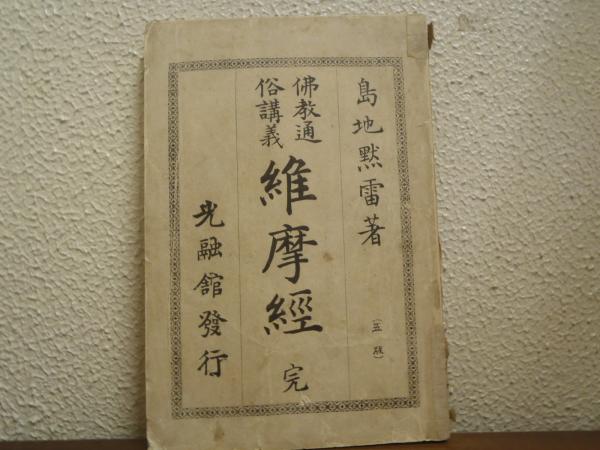 島地黙雷著
(五版)
佛教通
俗講義
維摩經 完
光融館發行